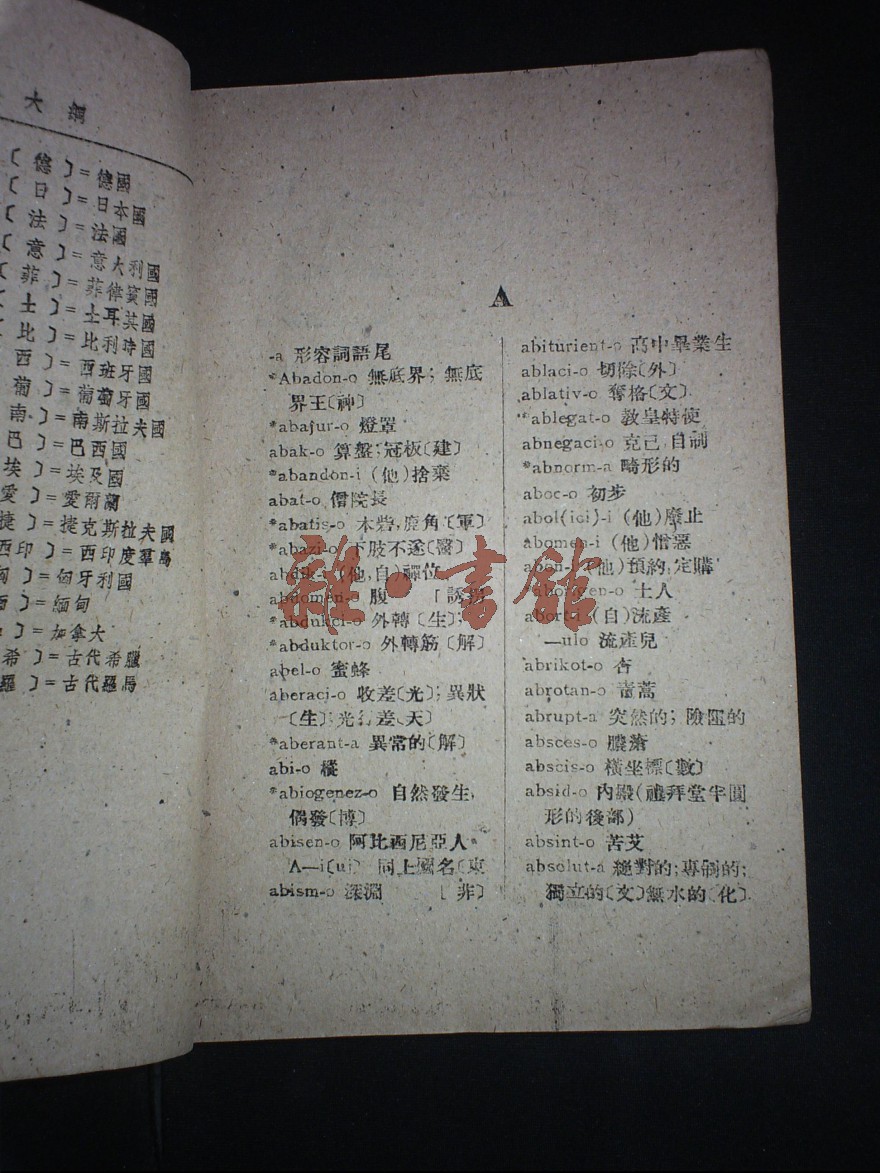 大綱
〔德〕=德國
〔日〕=日本國
〔法〕=法國
〔意〕=意大利國
〔菲〕=菲律賓國
〔土〕=土耳其國
比〕=比利時國
西〕=西班牙國
葡〕=葡萄牙國
南〕=南斯拉夫國
巴〕=巴西國
埃〕=埃及國
愛〕=愛爾蘭
捷〕=捷克斯拉夫國
西印〕=西印度羣島
匈〕=匈牙利國
〕=緬甸
〕=加拿大
希〕=古代希臘
羅〕=古代羅馬
A
-a 形容詞語尾
*Abadon-o 無底界; 無底
界王〔神〕
*abaĵur-o 燈罩
abak-o 算盤;冠板〔建〕
*abandon-i (他)捨棄
abat-o 僧院長
*abatis-o 木砦,鹿角〔軍〕
*abazi-o 下肢不遂〔醫〕
abdik-i (他,自)禪位
abdomen-o 腹 〔誘拐
*abdukci-o 外轉〔生〕;
*abduktor-o 外轉筋〔解〕
abel-o 蜜蜂
aberaci-o 收差〔光〕;異狀
〔生〕;光行差〔天〕
*aberant-a 異常的〔解〕
abi-o 樅
*abiogenez-o 自然發生,
偶發〔博〕
abisen-o 阿比西尼亞人
A—i〔uj〕 同上國名〔東
abism-o 深淵 〔非〕
abiturient-o 高中畢業生
ablaci-o 切除〔外〕
ablativ-o 奪格〔文〕
*ablegat-o 教皇特使
abnegaci-o 克己,自制
*abnorm-a 畸形的
aboc-o 初步
abol{ici}-i (他)廢止
abomen-i (他)憎惡
abon-i (他)預約,定購
*aborigen-o 土人
abort-i (自)流產
—ulo 流產兒
abrikot-o 杏
abrotan-o 蒿
abrupt-a 突然的; 險阻的
absces-o 膿瘡
abscis-o 橫坐標〔數〕
absid-o 內殿(禮拜堂半圓
形的後部)
absint-o 苦艾
absolut-a 絕對的;專制的;
獨立的〔文〕無水的〔化〕
雜·書館